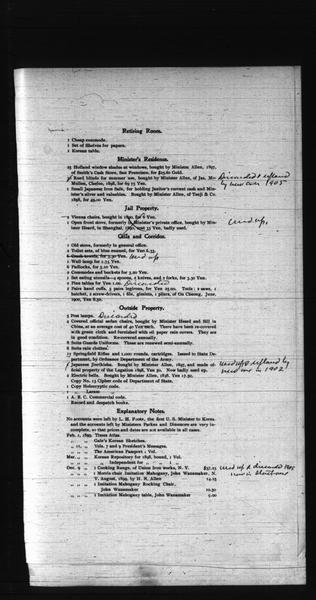 Retiring Room.
1 Cheap commode.
1 Set of Shelves for papers.
1 Korean table.
Minister's Residence.
25 Holland window shades at windows, bought by Minister Allen, 1897,
of Smith's Cash Store, San Francisco, for $25.60 Gold.
Reed blinds for summer use, bought by Minister Allen, of Jas. Mc-
Mullen, Chefoo, 1898, for 69.75 Yen.
Discarded & replaced
by new ones 1905
1 Small Japanese iron Safe, for holding Janitor's current cash and Min-
ister's silver and valuables. Bought of Minister Allen, of Tenji & Co.
1898, for 49.00 Yen.
Jail Property.
Vienna chairs, bought in 1890, for 6 Yen.
1 Open front stove, formerly in Minister's private office, bought by Min-
ister Heard, in Shanghai, 35 Yen, badly used.
used up.
Cells and Corridor.
1 Old stove, formerly in general office.
2 Toilet sets, of blue enamel, for Yen 6.33
for 3.30 Yen. Used up
1 Wall lamp for 1.75 Yen.
2 Padlocks, for 2.10 Yen.
2 Commodes and buckets for 3.20 Yen.
2 Set eating utensils—4 spoons, 2 knives, and 2 forks, for 3.30 Yen.
2 Pine tables for Yen 1.00. Discarded
2 Pairs hand cuffs, 2 pairs legirons, for Yen 25.00. Tools: 1 saws, 1
hatchet, 2 screw-drivers, 1 file, gimlets, 1 pliers, of Gu Cheong, June,
1900, Yen 6.50.
Outside Property.
5 Post lamps. Discarded
4 Covered official sedan chairs, bought by Minister Heard and Sill in
China, at an average cost of 40 Yen each. There have been re-covered
with green cloth and furnished with oil paper rain covers. They are
in good condition. Re-covered annually.
8 Suits Guards Uniforms. These are renewed semi-annually.
8 Suits rain clothes.
13 Springfield Rifles and 1,000 rounds, cartridges. Issued to State De-
partment, by Ordnance Department of the Army.
Japanese Jinrikisha. Bought by Minister Allen, 1897, and made of-
ficial property of the Legation 1898, Yen 30. Now badly used up.
Used up & replaced by
new one in 1902
2 Electric bells. Bought of Minister Allen, 1898, Yen 17.50.
Copy No. 13 Cipher code of Department of State.
Copy Holocryptic code.
1 Larrac
1 A. B. C. Commercial code.
Record and despatch books.
Explanatory Notes.
No accounts were left by L. H. Foote, the first U. S. Minister to Korea
and the accounts left by Ministers Parker and Dinsmore are very in-
complete, so that prices and dates are not available in all cases.
Feb. 1, 1899. Times Atlas.
„ „ Gale's Korean Sketches.
„ 11, „ Vols. 7 and 9 President's Messages.
„ „ The American Passport 1 Vol.
Mar. „ Korean Repository for 1898, bound, 1 Vol.
„ „ Independent for „ „ 1 „
Oct. 2 „ 1 Cooking Range, of Union Iron works, N. Y. $37.25
„ „ 1 Morris chair Imitation Mahogany, John Wanamaker, N.
Y. August, 1899, by H. N. Allen 14.25
„ „ 1 Imitation Mahogany Rocking Chair,
John Wanamaker 10.50
„ „ 1 Imitation Mahogany table, John Wanamaker 5.00
Used up & discarded 1905